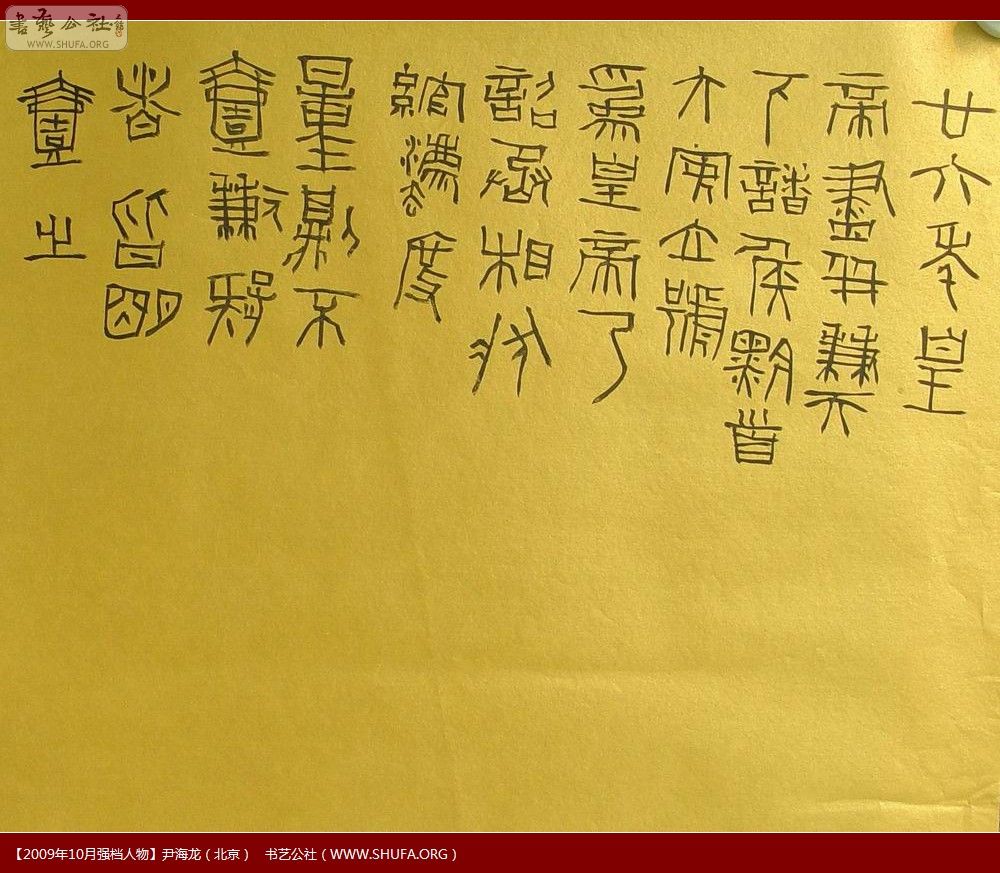 書藝公社
WWW.SHUFA.ORG
廿六年皇
帝盡并兼天
下諸侯黔首
大安立號
為皇帝乃
詔丞相狀
綰灋度
量則不
壹歉疑
者皆明
壹之
【2009年10月强档人物】尹海龙（北京） 书艺公社（WWW.SHUFA.ORG）